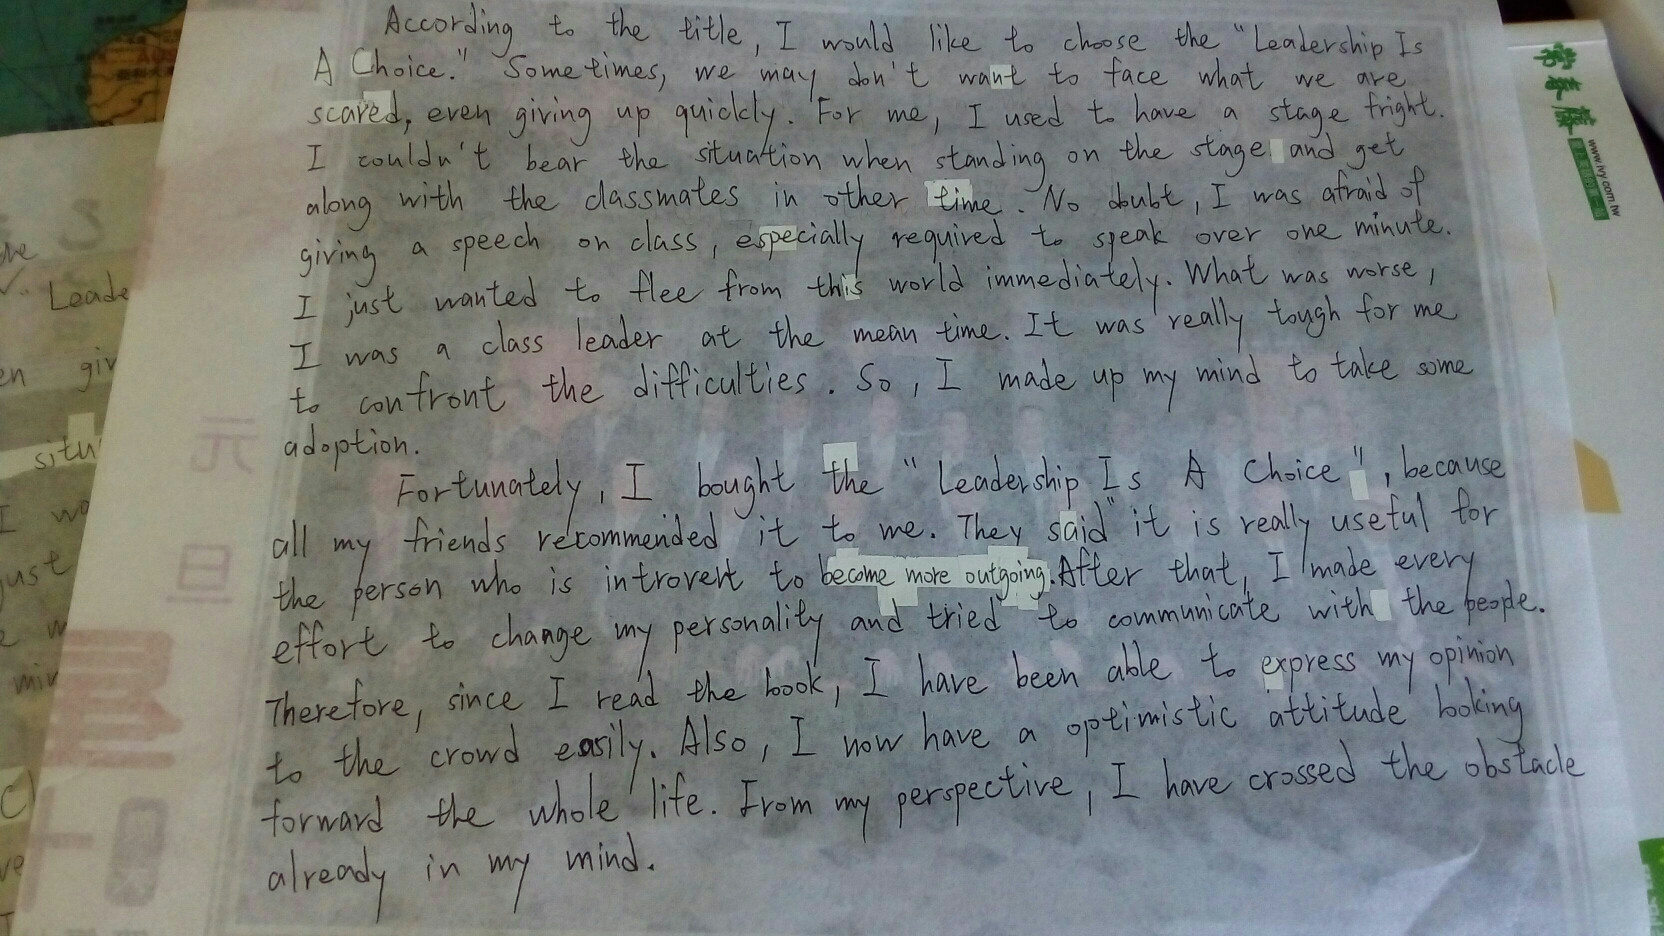 According to the title, I would like to choose the "Leadership Is
A Choice." Sometimes, we may don't want to face what we are
scared, even giving up quickly. For me, I used to have a stage fright.
I couldn't bear the situation when standing on the stage and get
along with the classmates in other time. No doubt, I was afraid of
giving a speech on class, especially required to speak over one minute.
I just wanted to flee from this world immediately. What was worse,
I was a class leader at the mean time. It was really tough for me
to confront the difficulties. So, I made up my mind to take some
adoption.
Fortunately, I bought the "Leadership Is A Choice", because
all my friends recommended it to me. They said "it is really useful for
the person who is introvert to become more outgoing. After that, I made every
effort to change my personality and tried to communicate with the people.
Therefore, since I read the book, I have been able to express my opinion
to the crowd easily. Also, I now have a optimistic attitude looking
forward the whole life. From my perspective, I have crossed the obstacle
already in my mind.
常春藤
www.ivy.com.tw
元
旦
Leade
en giv
situ
I wo
just
min